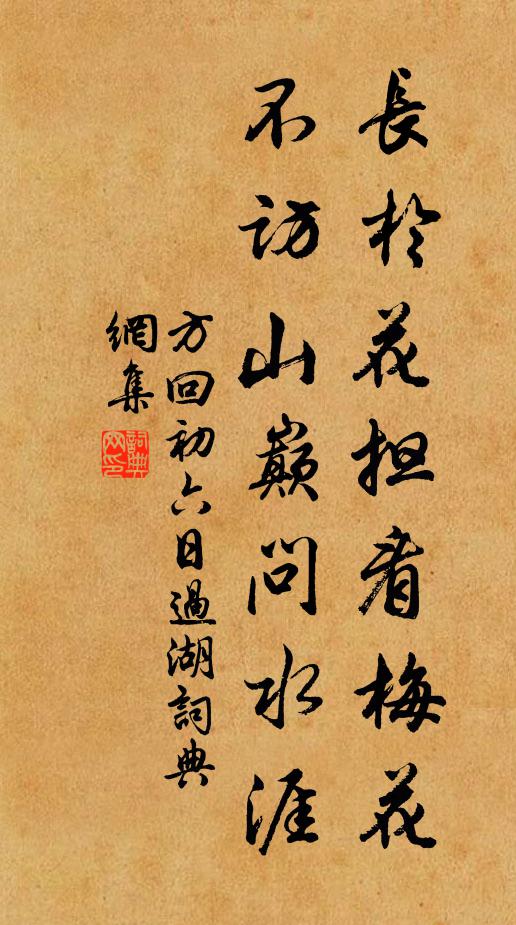 長於花担看梅花
不访山巔问水涯
方回初六日過湖詞典
網集
詞典
网印